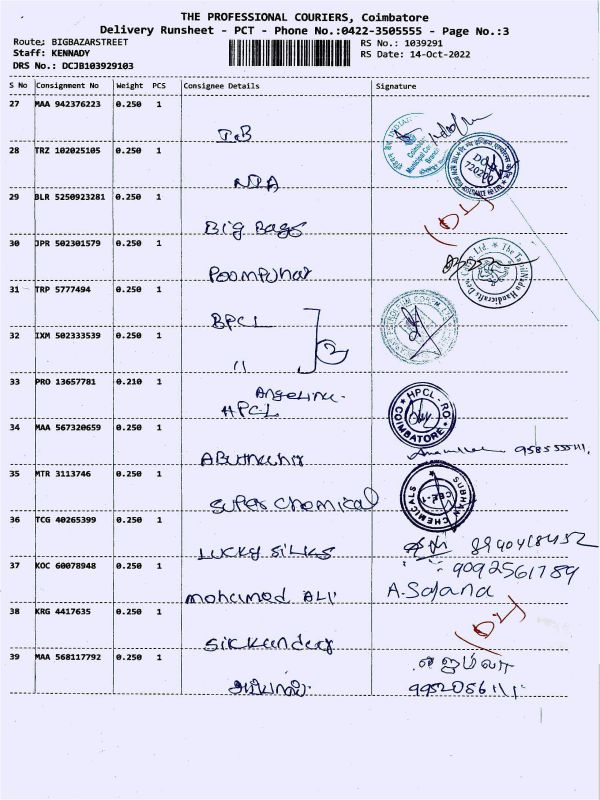 THE PROFESSIONAL COURIERS, Coimbatore
Delivery Runsheet - PCT - Phone No.:0422-3505555 - Page No.:3
Route: BIGBAZARSTREET
Staff: KENNADY
DRS No.: DCJB103929103
RS No.: 1039291
RS Date: 14-Oct-2022
S No Consignment No Weight PCS Consignee Details Signature
27 MAA 942376223 0.250 1
28 TRZ 102025105 0.250 1
29 BLR 5250923281 0.250 1
Big Bags
30 JPR 502301579 0.250 1
Poompuhar
31 TRP 5777494 0.250 1
BPCL
32 IXM 502333539 0.250 1
"
2
33 PRO 13657781 0.210 1
Angeline.
HPCL
HPCL - RO
COIMBATORE
34 MAA 567320659 0.250 1
35 MTR 3113746 0.250 1
Super chemical
SUBHAN CHEMICALS
CBE-1
36 TCG 40265399 0.250 1
Lucky Silks
8940418452
37 KOC 60078948 0.250 1
9092561789
mohamed Ali
A. Sajana
38 KRG 4417635 0.250 1
Sikkandar
39 MAA 568117792 0.250 1